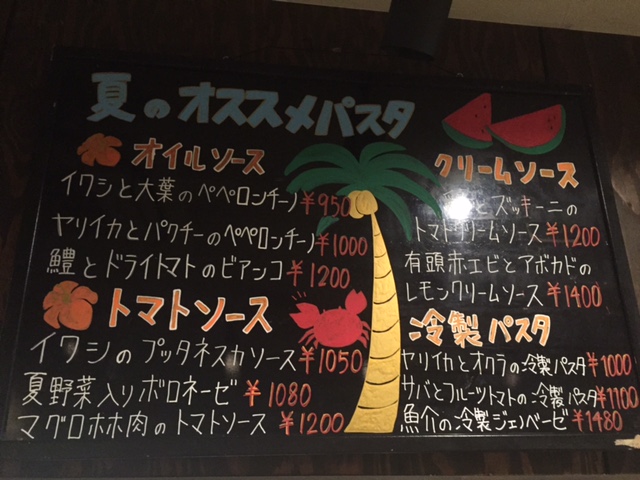 夏のオススメパスタ
オイルソース
イワシと大葉のペペロンチーノ ¥950
ヤリイカとパクチーのペペロンチーノ ¥1000
鱧とドライトマトのビアンコ ¥1200
トマトソース
イワシのプッタネスカソース ¥1050
夏野菜入りボロネーゼ ¥1080
マグロホホ肉のトマトソース ¥1200
クリームソース
とズッキーニの
トマトクリームソース ¥1200
有頭赤エビとアボカドの
レモンクリームソース ¥1400
冷製パスタ
ヤリイカとオクラの冷製パスタ ¥1000
サバとフルーツトマトの冷製パスタ ¥1100
魚介の冷製ジェノベーゼ ¥1480